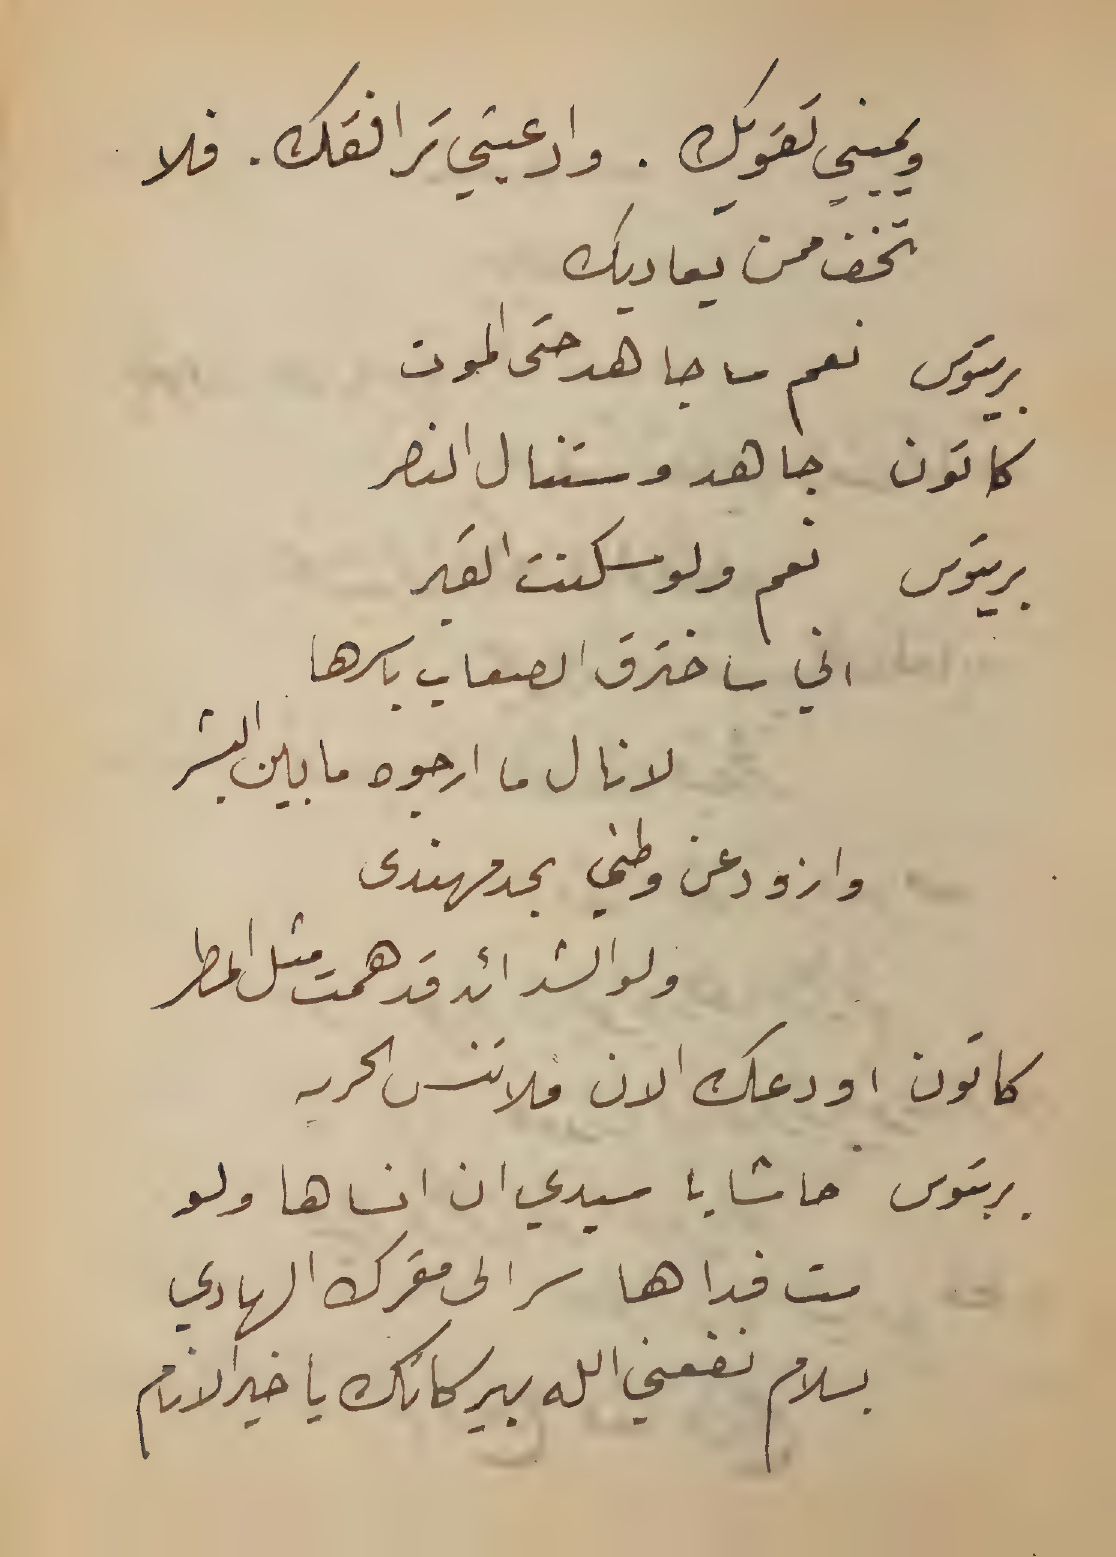 ويميني تقويك . وادعيتي ترافقك . فلا
تخف ممن يعاديك
بريتوس نعم ساجاهد حتى الموت
كاتون جاهد وستنال النصر
بريتوس نعم ولو سكنت القبر
اني ساخترق الصعاب باسرها
لانال ما ارجوه ما بين البشر
وازود عن وطني بحد مهندى
ولو الشدائد قد همت مثل المطر
كاتون اودعك الان فلا تنس الحريه
بريتوس حاشا يا سيدي ان انساها ولو
مت فداها سر الى مقرك الهادي
بسلام نفعني الله ببركاتك يا خير الانام